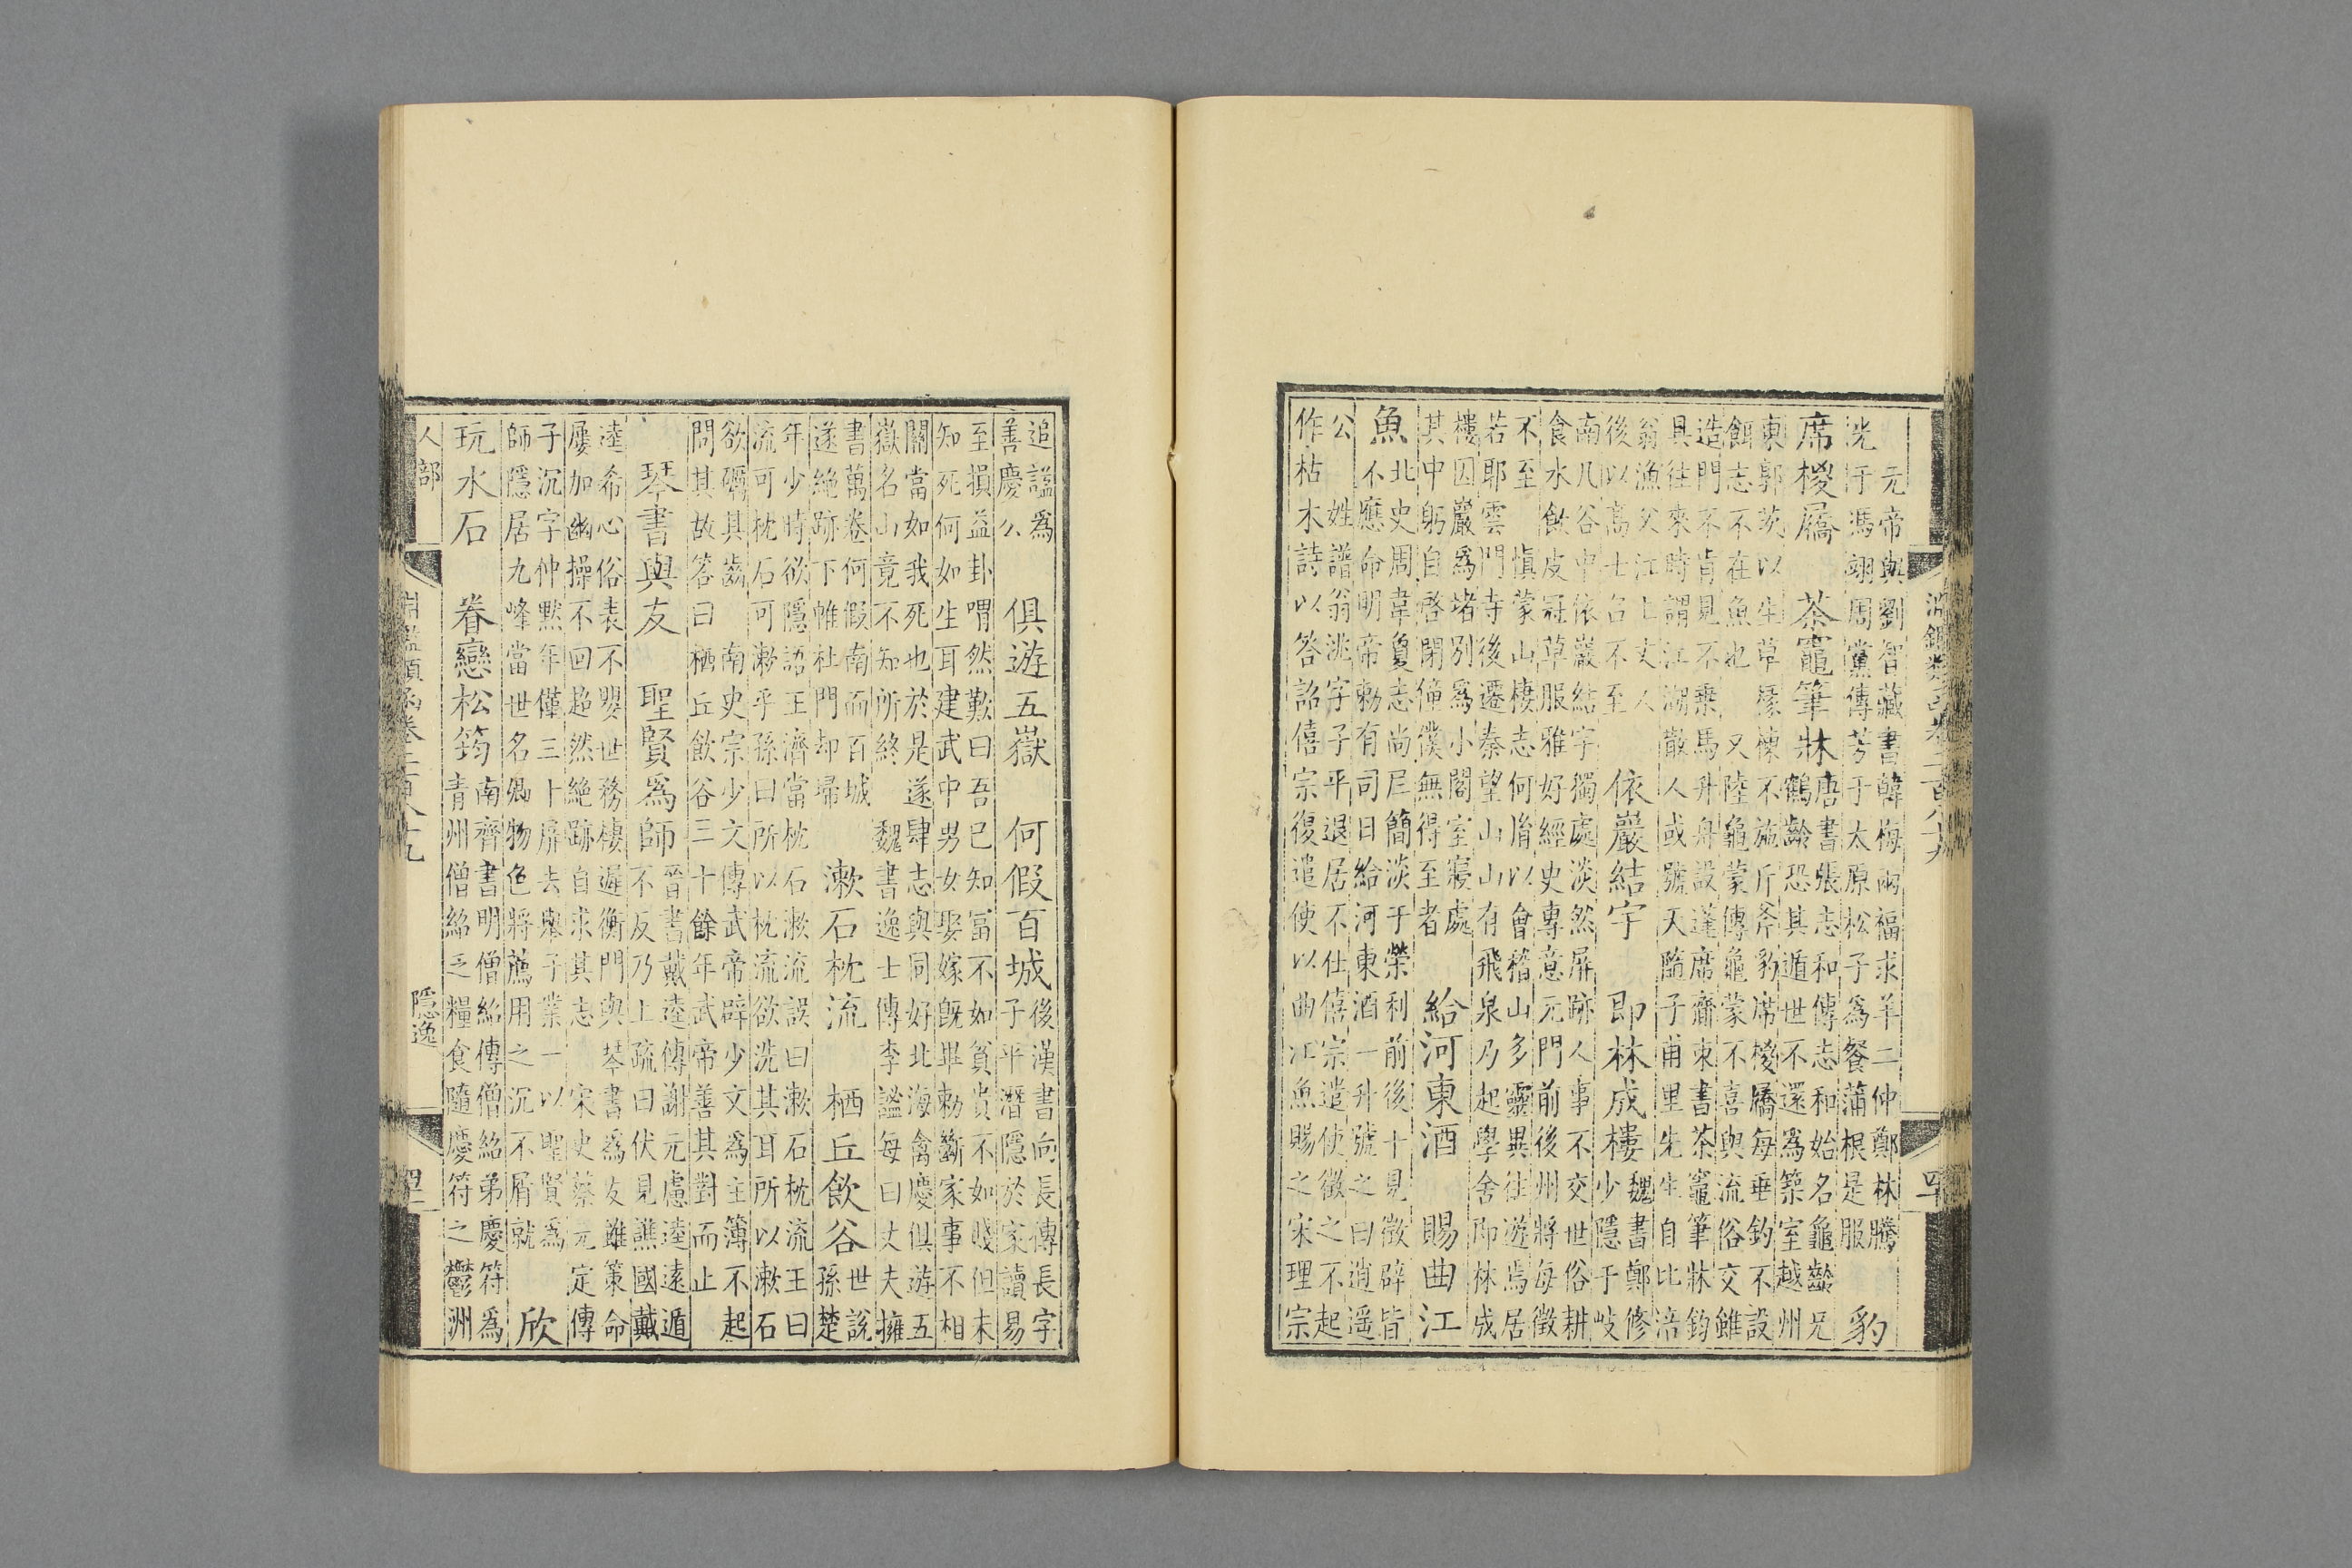 元帝與劉智藏書韓梅兩福求羊二仲鄭林騰
汙馮翊周黨傳芳于太原松子為餐蒲根是服
豹
席㮨屩 茶竈筆牀
唐書張志和傳志和始名龜齡兄
鶴齡恐其遁世不還為築室越州
東郭茨以生草椽棟不施斤斧豹席㮨屩每垂釣不設
餌志不在魚也 又陸龜蒙傳龜蒙不喜與流俗交雖
造門不肯見不乗馬升舟設蓬席齎束書茶竈筆牀釣
具往來時謂江湖散人或號天隨子甫里先生自比涪
翁漁父江上丈人
後以高士召不至
依巖結宇 即林成樓
魏書鄭修
少隱于岐
南几谷中依巖結宇獨處淡然屏跡人事不交世俗耕
食水飲皮冠草服雅好經史專意元門前後州將每徵
不至 慎蒙山棲志何胤以會稽山多靈異往遊焉居
若耶雲門寺後遷秦望山山有飛泉乃起學舍即林成
樓因巖為堵别為小閣室寢處
其中躬自啓閉僮僕無得至者
給河東酒 賜曲江
魚
北史周韋夐志尚尼簡淡于榮利前後十見徵辟皆
不應命明帝勅有司日給河東酒一升號之曰逍遥
公 姓譜翁洮字子平退居不仕僖宗遣使徵之不起
作枯木詩以答詔僖宗復遣使以曲江魚賜之宋理宗
追諡為
善慶公
俱遊五嶽 何假百城
後漢書向長傳長字
子平潛隱於家讀易
至損益卦喟然歎曰吾已知富不如貧貴不如賤但未
知死何如生耳建武中男女娶嫁既畢勅斷家事不相
關當如我死也於是遂肆志與同好北海禽慶俱遊五
嶽名山竟不知所終 魏書逸士傳李謐每曰丈夫擁
書萬卷何假南面百城
遂絶跡下帷杜門却埽
漱石枕流 栖丘飲谷
世說
孫楚
年少時欲隱語王濟當枕石漱流誤曰漱石枕流王曰
流可枕石可漱乎孫曰所以枕流欲洗其耳所以漱石
欲礪其齒 南史宗少文傳武帝辟少文為主簿不起
問其故答曰栖丘飲谷三十餘年武帝善其對而止
琴書與友 聖賢為師
晉書戴逵傳謝元慮逵遠遁
不反乃上疏曰伏見譙國戴
逵希心俗表不嬰世務棲遲衡門與琴書為友雖策命
屢加幽操不回超然絶跡自求其志 宋史蔡元定傳
子沉字仲默年僅三十屏去舉子業一以聖賢為
師隱居九峰當世名卿物色將薦用之沉不屑就
欣
玩水石 眷戀松筠
南齊書明僧紹傳僧紹弟慶符為
青州僧紹乏糧食隨慶符之鬱洲
人部
淵鑑類函卷二百八十九
隱逸